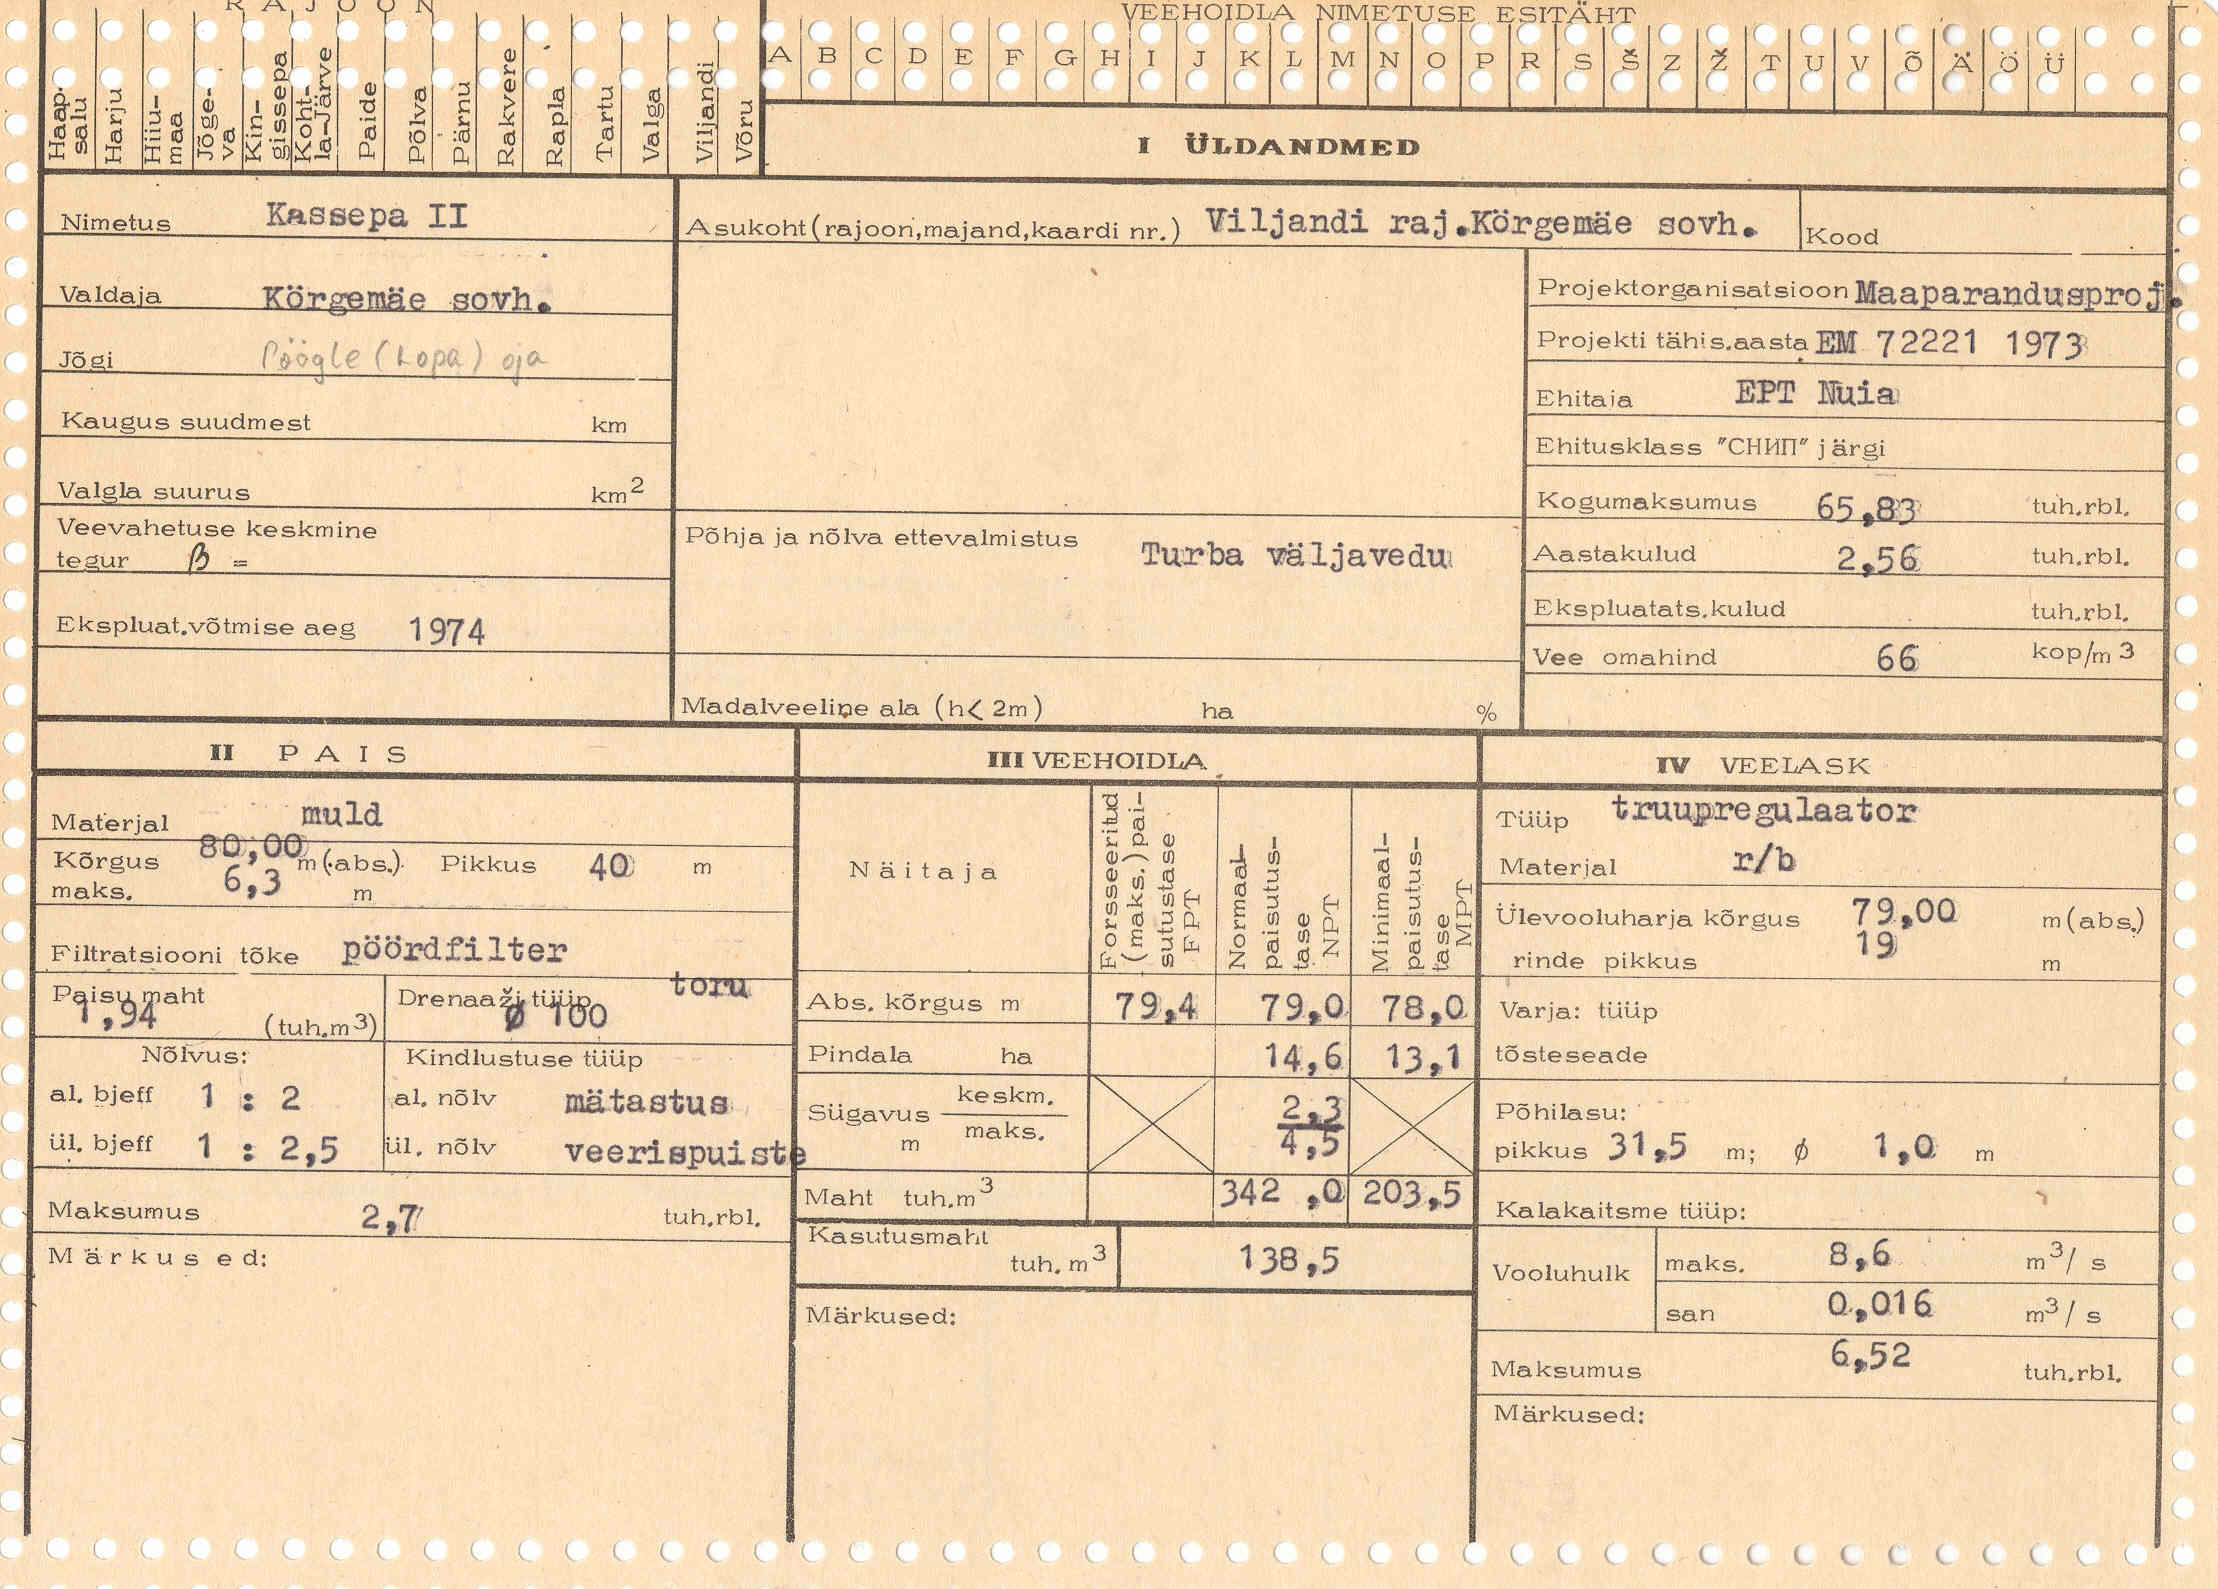 RAJOON
VEEHOIDLA NIMETUSE ESITÄHT
Haap-salu Harju Hiiu-maa Jõge-va Kin-gissepa Koht-la-Järve Paide Põlva Pärnu Rakvere Rapla Tartu Valga Viljandi Võru
A B C D E F G H I J K L M N O P R S Š Z Ž T U V Õ Ä Ö Ü
I ÜLDANDMED
Nimetus Kassepa II
Asukoht (rajoon, majand, kaardi nr.) Viljandi raj. Körgemäe sovh.
Kood
Valdaja Körgemäe sovh.
Jõgi Pöögle (Lopa) oja
Kaugus suudmest km
Valgla suurus km2
Veevahetuse keskmine
tegur β =
Ekspluat. võtmise aeg 1974
Põhja ja nõlva ettevalmistus Turba väljavedu
Madalveeline ala (h< 2m) ha %
Projektorganisatsioon Maaparandusproj.
Projekti tähis. aasta EM 72221 1973
Ehitaja EPT Nuia
Ehitusklass "СНИП" järgi
Kogumaksumus 65,83 tuh.rbl.
Aastakulud 2,56 tuh.rbl.
Ekspluatats. kulud tuh.rbl.
Vee omahind 66 kop/m3
II PAIS
Materjal muld
Kõrgus 80,00 m (abs.) Pikkus 40 m
maks. 6,3 m
Filtratsiooni tõke pöördfilter
Paisu maht 1,94 (tuh.m3)
Drenaaži tüüp toru
ø 100
Nõlvus: Kindlustuse tüüp
al. bjeff 1 : 2 al. nõlv mätastus
ül. bjeff 1 : 2,5 ül. nõlv veerispuiste
Maksumus 2,7 tuh.rbl.
Märkused:
III VEEHOIDLA
Näitaja
Forsseeritud (maks.) pai-sutustase FPT
Normaal-paisutus-tase NPT
Minimaal-paisutus-tase MPT
Abs. kõrgus m 79,4 79,0 78,0
Pindala ha 14,6 13,1
Sügavus keskm. 2,3
m maks. 4,5
Maht tuh.m3 342,0 203,5
Kasutusmaht
tuh. m3 138,5
Märkused:
IV VEELASK
Tüüp truupregulaator
Materjal r/b
Ülevooluharja kõrgus 79,00 m (abs.)
rinde pikkus 19 m
Varja: tüüp
tõsteseade
Põhilasu:
pikkus 31,5 m; ø 1,0 m
Kalakaitsme tüüp:
Vooluhulk maks. 8,6 m3/ s
san 0,016 m3/ s
Maksumus 6,52 tuh.rbl.
Märkused: